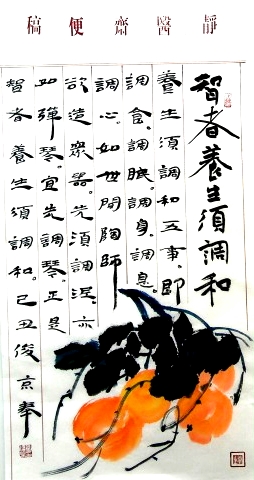 靜醫齋便稿
智者養生須調和
養生須調和五事。即
調食。調眠。調身。調息。
調心。如世間陶師
欲造眾器。先須調泥。亦
如彈琴。宜先調琴。正是
智者養生須調和。己丑俊京奉